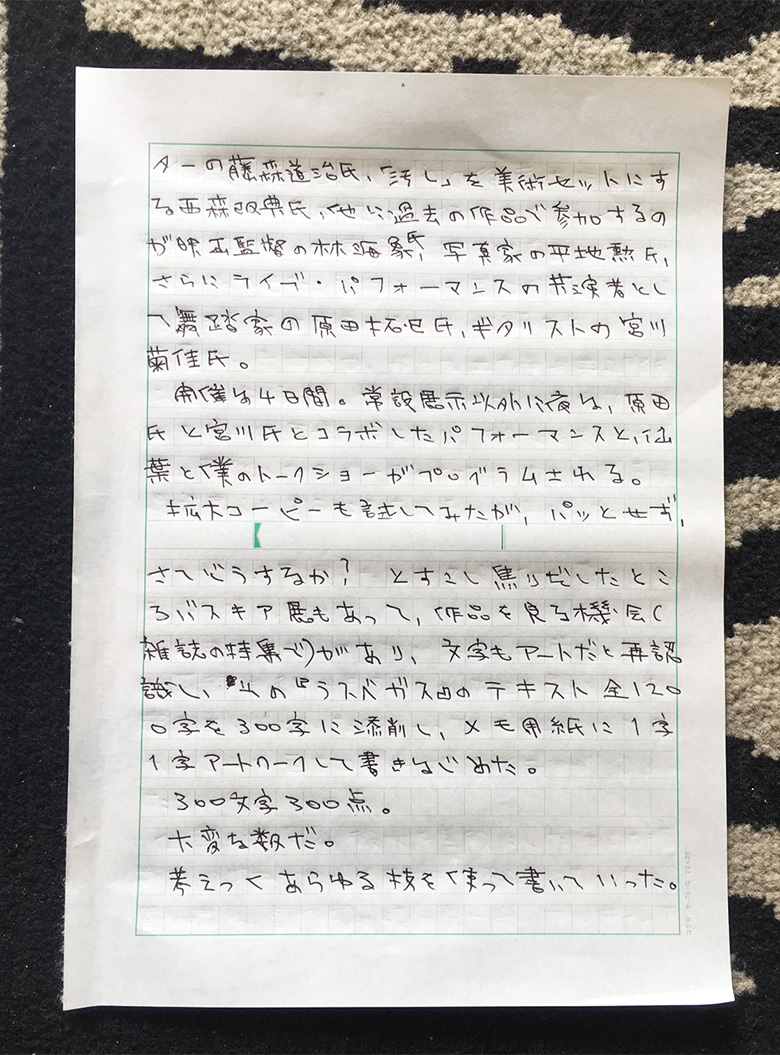 ターの藤森道治氏、「汚し」を美術セットにす
る西森改典氏、他に過去の作品で参加するの
が映画監督の林海象氏、写真家の平地勲氏、
さらにライブ・パフォーマンスの共演者とし
て舞踏家の原田拓巳氏、ギタリストの宮川
菊佳氏。
開催は4日間。常設展示以外に夜は、原田
氏と宮川氏とコラボしたパフォーマンスと、仙
葉と僕のトークショーがプログラムされる。
拡大コーピーも試してみたが、パッとせず、
さてどうするか? とすこし焦りだしたとこ
ろバスキア展もあって、作品を見る機会(
雑誌の特集で)があり、文字もアートだと再認
識し、『ラスベガス』のテキスト全120
0字を300字に添削し、メモ用紙に1字
1字アートワークして書きはじめた。
300文字300点。
大変な数だ。
考えつくあらゆる技を使って書いていった。
コクヨ ケ-70 20×20